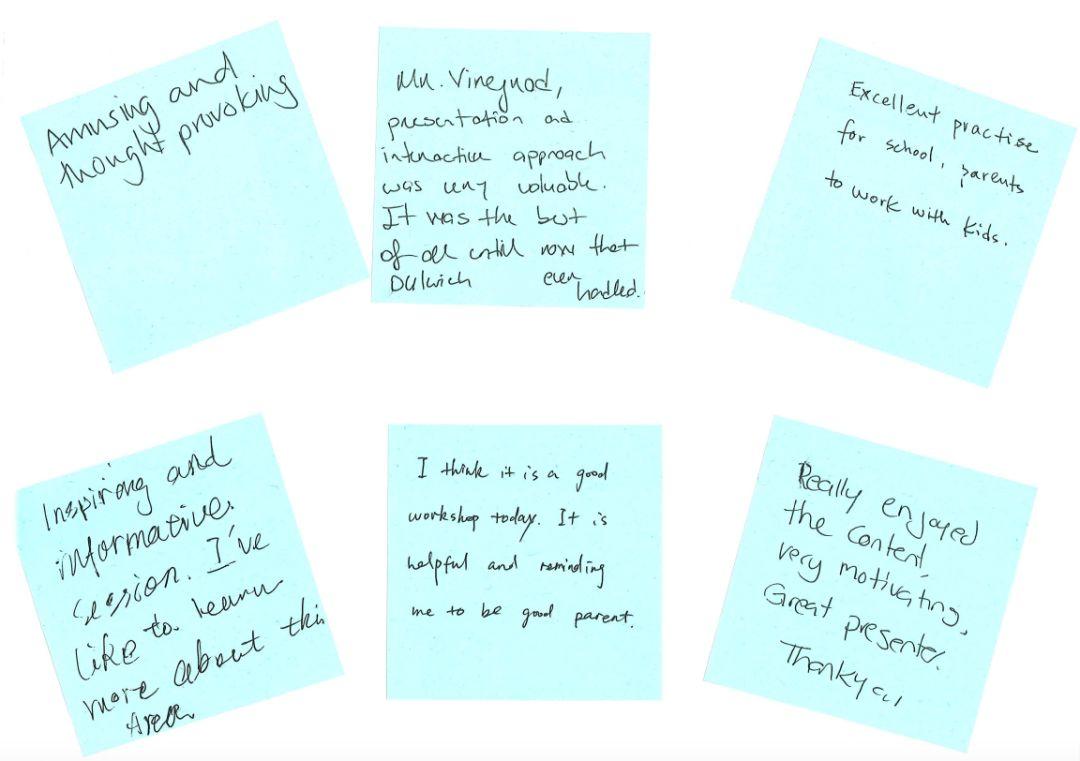 Amusing and
thought provoking
Mr. Vinegrad,
presentation and
interactive approach
was very valuable.
It was the best
of all until now that
Dulwich ever handled.
Excellent practise
for school, parents
to work with kids.
Inspiring and
informative
session. I've
like to learn
more about this
Area
I think it is a good
workshop today. It is
helpful and reminding
me to be good parent.
Really enjoyed
the content,
very motivating,
Great presenter.
Thankyou